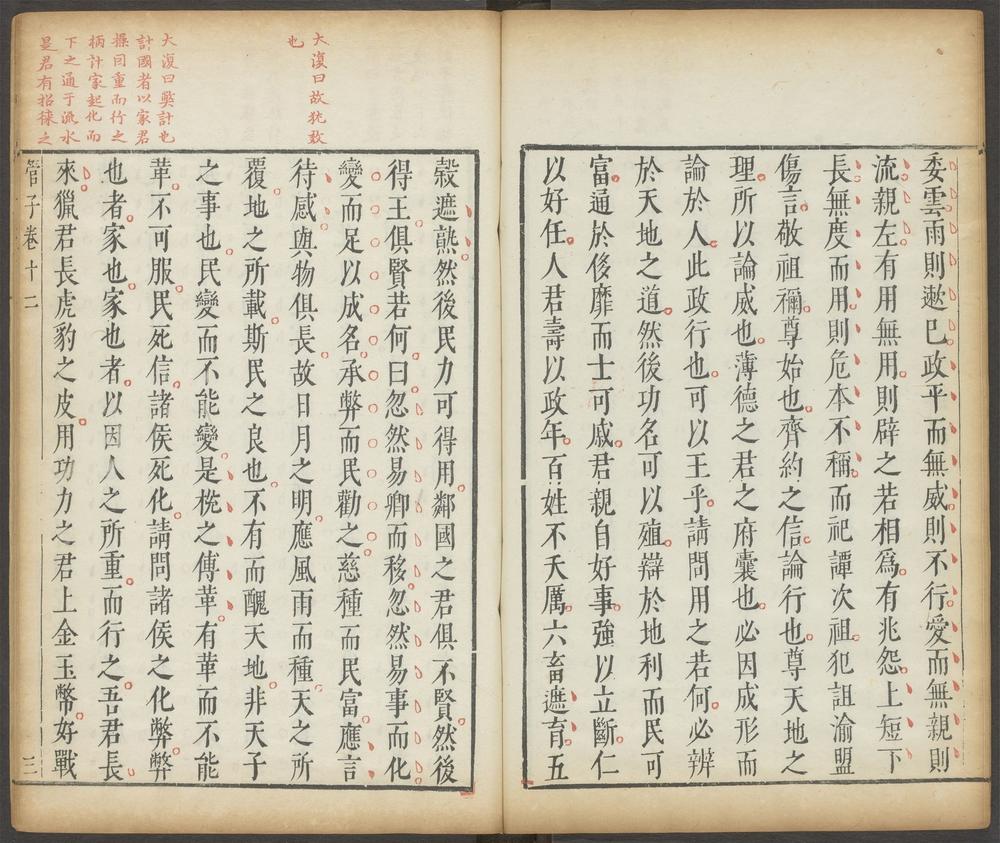 委雲雨則遬已政平而無威則不行愛而無親則
流親左有用無用則辟之若相爲有兆怨上短下
長無度而用則危本不稱而祀譚次祖犯詛渝盟
傷言敬祖禰尊始也齊約之信論行也尊天地之
理所以論威也薄德之君之府囊也必因成形而
論於人此政行也可以王乎請問用之若何必辨
於天地之道然後功名可以殖辯於地利而民可
富通於侈靡而士可戚君親自好事強以立斷仁
以好任人君壽以政年百姓不夭厲六畜遮育五
大復曰故猶数
也
穀遮熟然後民力可得用鄰國之君俱不賢然後
得王俱賢若何曰忽然易卿而移忽然易事而化
變而足以成名承弊而民勸之慈種而民富應言
待感與物俱長故日月之明應風雨而種天之所
覆地之所載斯民之良也不有而醜天地非天子
之事也民變而不能變是梲之傅革有革而不能
革不可服民死信諸侯死化請問諸侯之化弊弊
也者家也家也者以因人之所重而行之吾君長
來獵君長虎豹之皮用功力之君上金玉幣好戰
大復曰弊計也
計國者以家君
攈因重而行之
柄計家起化而
下之通于流水
是君有招徠之
管子卷十二
三